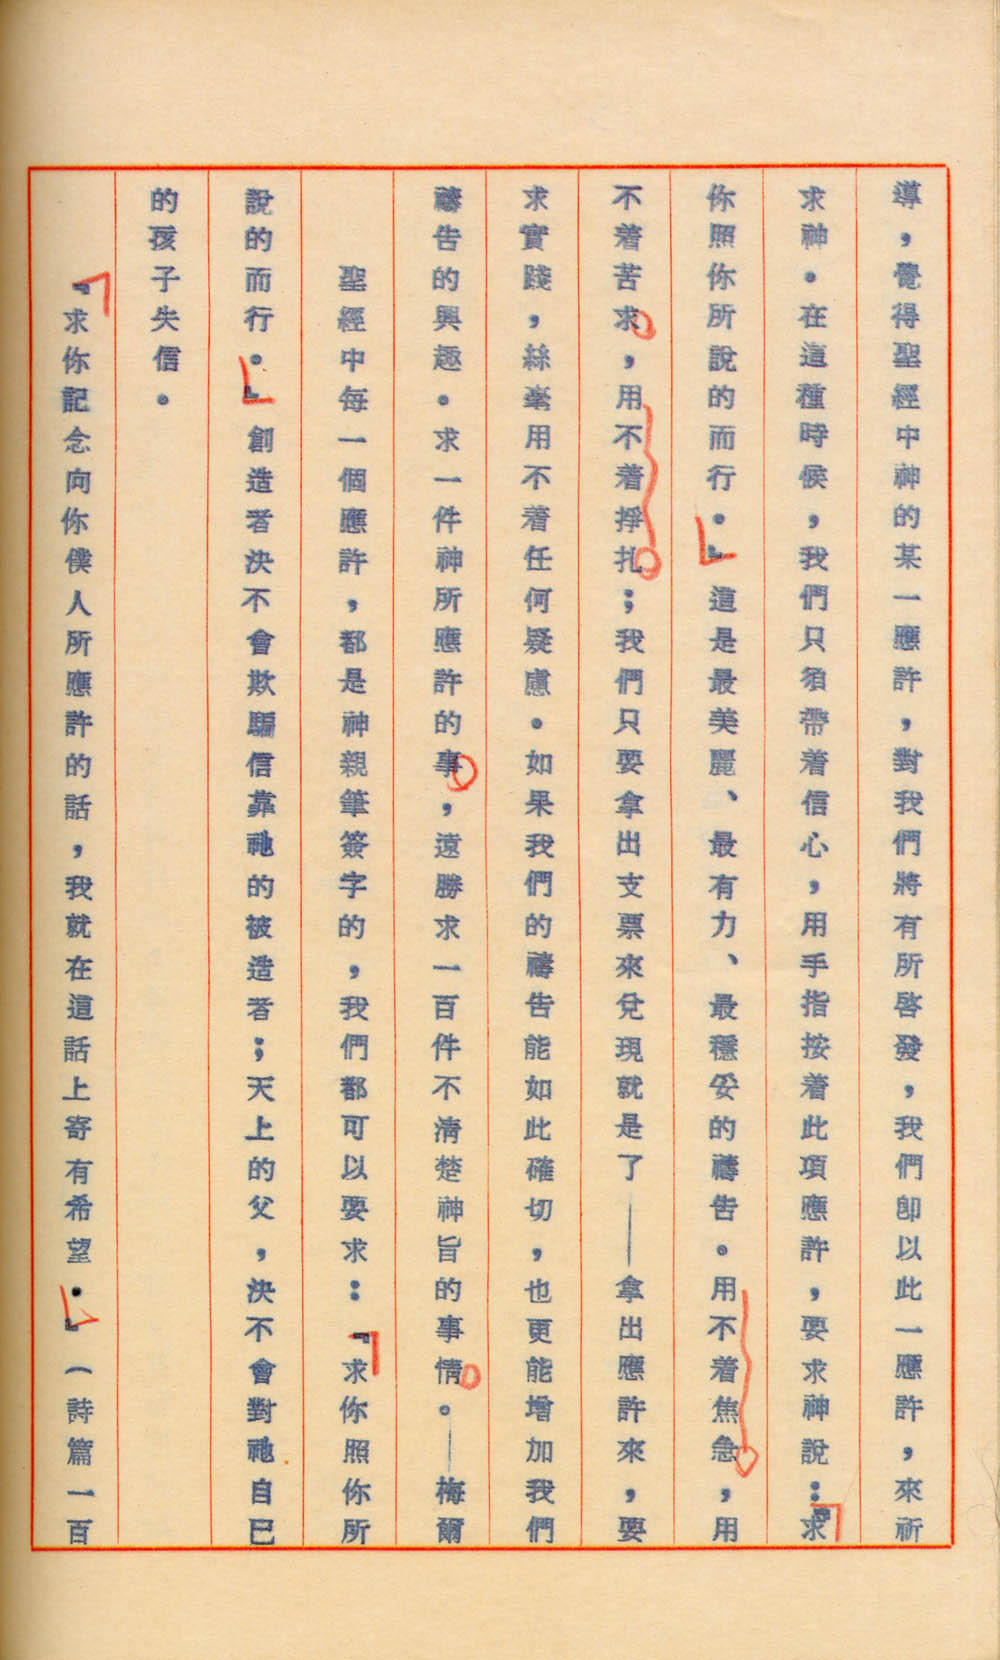 導，覺得聖經中神的某一應許，對我們將有所啓發，我們卽以此一應許，來祈
求神。在這種時候，我們只須帶着信心，用手指按着此項應許，要求神說：『求
你照你所說的而行。』這是最美麗、最有力、最穩妥的禱告。用不着焦急，用
不着苦求，用不着掙扎；我們只要拿出支票來兌現就是了——拿出應許來，要
求實踐，絲毫用不着任何疑慮。如果我們的禱告能如此確切，也更能增加我們
禱告的興趣。求一件神所應許的事，遠勝求一百件不清楚神旨的事情。——梅爾
聖經中每一個應許，都是神親筆簽字的，我們都可以要求：『求你照你所
說的而行。』創造者決不會欺騙信靠祂的被造者；天上的父，決不會對祂自己
的孩子失信。
『求你記念向你僕人所應許的話，我就在這話上寄有希望。』（詩篇一百